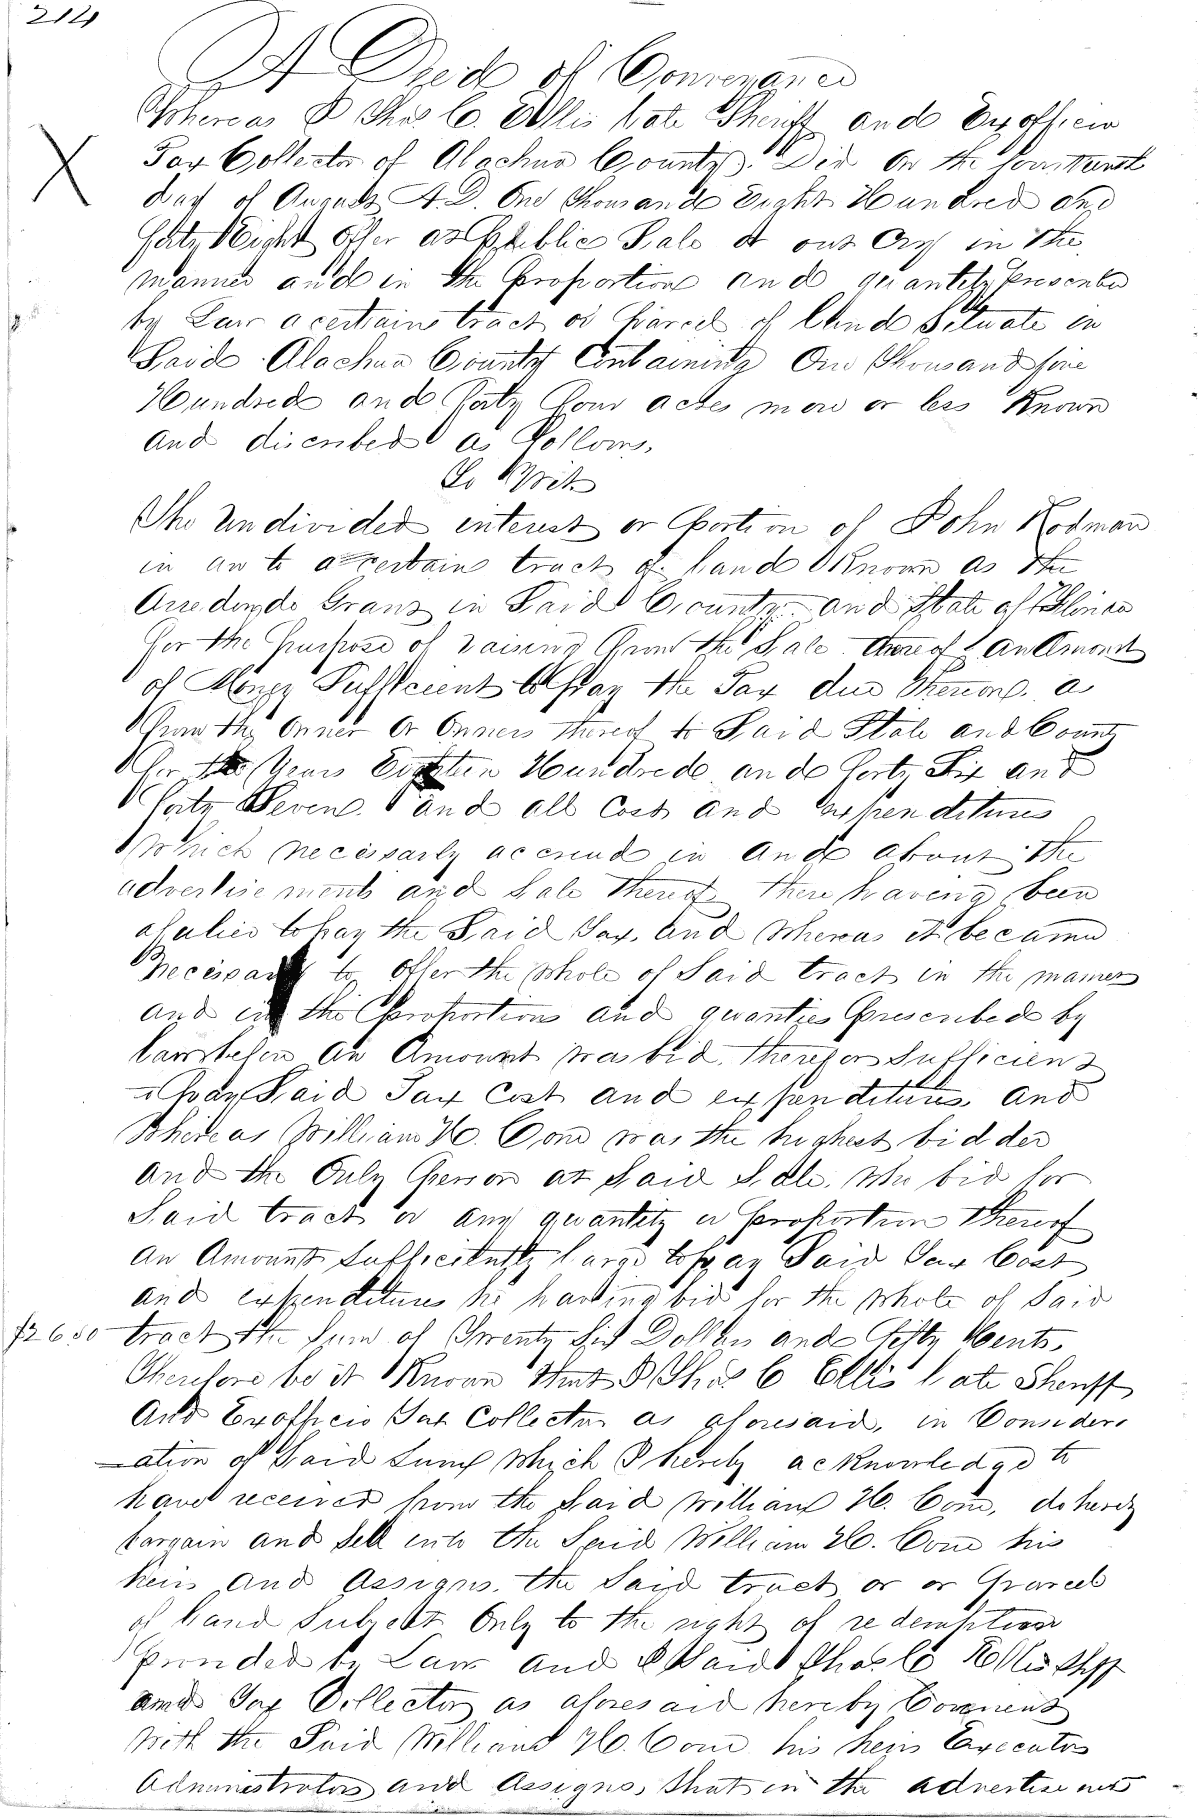 214
A Deed of Conveyance
Whereas I Thos. C. Ellis late Sheriff and Exofficio
Tax Collector of Alachua County. Did on the fourteenth
day of August A.D. One Thousand Eight Hundred and
forty Eight offer at Public Sale at out Cry in the
manner and in the Proportion and quantity Prescribed
by Law a certain tract or Parcel of land Situate in
Said Alachua County Containing One Thousand five
Hundred and forty four acres more or less Known
and discribed as follows.
To Wit
The Undivided interest or Portion of John Rodman
in an to a certain tract of land Known as the
Arredondo Grant in Said County and State of Florida
for the Purpose of raising from the Sale thereof an Amount
of Money Sufficient to pay the Tax due Thereon. a
from the Owner or Owners thereof to Said State and County
for the Years Eighteen Hundred and forty Six and
forty Seven. and all Cost and expenditures
which necessarly accrued in and about the
advertisements and Sale thereof there having been
a falier to pay the Said Tax. and Whereas it became
Necessary to offer the whole of Said tract in the manner
and in the Proportions and quanties Prescribed by
law before an Amount was bid therefor Sufficient
to pay Said Tax Cost and expenditures and
Whereas William H. Cone was the highest bidder
and the Only Person at Said Sale. who bid for
Said tract or any quantity or Proportion thereof
an Amount Sufficiently large to pay Said Tax Cost
and expenditures he having bid for the whole of Said
$26.50 tract the Sum of Twenty Six Dollars and fifty Cents.
Therefore be it Known that I Thos C Ellis late Sheriff
And Exofficio Tax Collector as aforesaid, in Consider
-ation of Said Sum which I hereby acknowledge to
have received from the Said William H. Cone, do hereby
bargain and Sell unto the Said William H. Cone his
heirs and Assigns. the Said tract or or Parcel
of land Subject Only to the right of redemption
Provided by Law and I Said Thos C Ellis Shff
and Tax Collector as aforesaid hereby Covenent
With the Said William H. Cone his heirs Executors
Administrators and Assigns, that in the advertisements